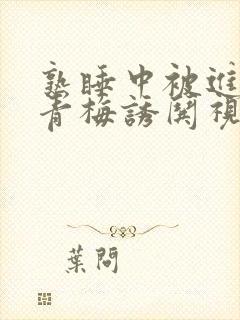 熟睡中被進
青梅誘関視
葉問